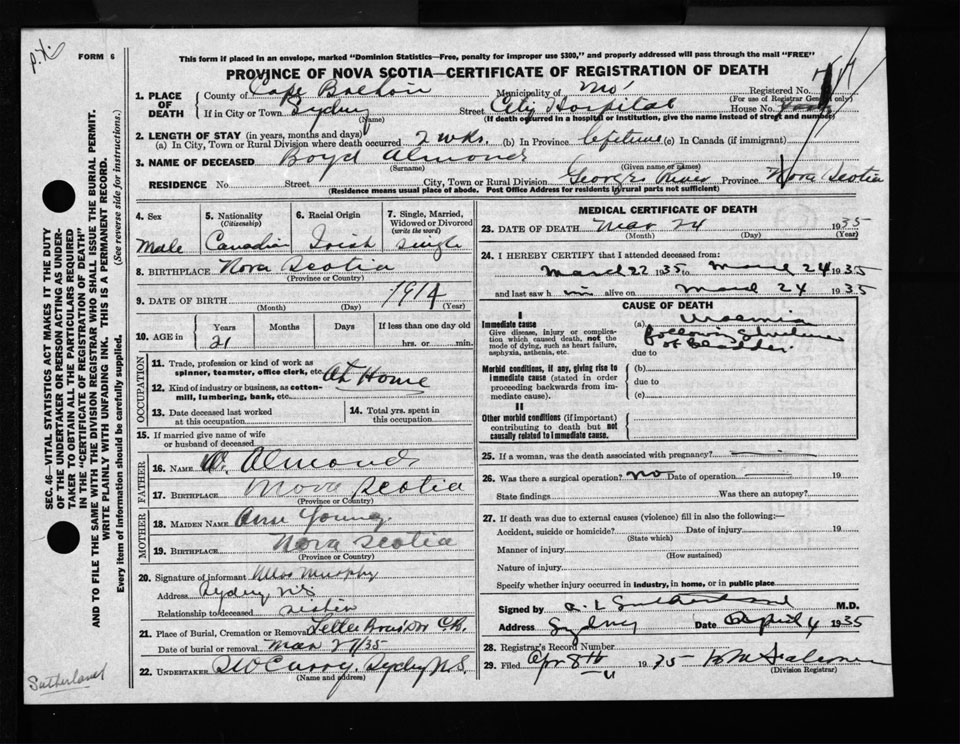 P.X.
FORM 6
This form if placed in an envelope, marked "Dominion Statistics—Free, penalty for improper use $300," and properly addressed will pass through the mail "FREE"
PROVINCE OF NOVA SCOTIA—CERTIFICATE OF REGISTRATION OF DEATH
1. PLACE OF DEATH
County of Cape Breton Municipality of Registered No.
(For use of Registrar General only)
If in City or Town Sydney Street City Hospital House No.
(Name) (If death occurred in a hospital or institution, give the name instead of street and number)
2. LENGTH OF STAY (in years, months and days)
(a) In City, Town or Rural Division where death occurred 2 wks. (b) In Province lifetime (c) In Canada (if immigrant)
3. NAME OF DECEASED Boyd Almond
(Surname) (Given name or names)
RESIDENCE No. Street City, Town or Rural Division Georges River Province Nova Scotia
(Residence means usual place of abode. Post Office Address for residents in rural parts not sufficient)
4. Sex
Male
5. Nationality
(Citizenship)
Canadian
6. Racial Origin
Irish
7. Single, Married, Widowed or Divorced
(write the word)
single
8. BIRTHPLACE Nova Scotia
(Province or Country)
9. DATE OF BIRTH 1914
(Month) (Day) (Year)
10. AGE in
Years Months Days If less than one day old
21 hrs. or min.
OCCUPATION
11. Trade, profession or kind of work as
spinner, teamster, office clerk, etc. At Home
12. Kind of industry or business, as cotton-
mill, lumbering, bank, etc.
13. Date deceased last worked
at this occupation
14. Total yrs. spent in
this occupation
15. If married give name of wife
or husband of deceased
FATHER
16. NAME W. Almond
17. BIRTHPLACE Nova Scotia
(Province or Country)
MOTHER
18. MAIDEN NAME Ann Young
19. BIRTHPLACE Nova Scotia
(Province or Country)
20. Signature of informant Murphy
Address Sydney N.S.
Relationship to deceased sister
21. Place of Burial, Cremation or Removal C.B.
Date of burial or removal Mar 27/35
22. UNDERTAKER Curry, Sydney N.S.
(Name and address)
MEDICAL CERTIFICATE OF DEATH
23. DATE OF DEATH Mar 24 1935
(Month) (Day) (Year)
24. I HEREBY CERTIFY that I attended deceased from:
March 22 1935 to March 24 1935
and last saw him alive on March 24 1935
CAUSE OF DEATH
I
Immediate cause
Give disease, injury or complica-
tion which caused death, not the
mode of dying, such as heart failure,
asphyxia, asthenia, etc.
(a) Uraemia
following
of Bladder.
due to
Morbid conditions, if any, giving rise to
immediate cause (stated in order
proceeding backwards from im-
mediate cause).
(b)
due to
(c)
II
Other morbid conditions (if important)
contributing to death but not
causally related to immediate cause.
25. If a woman, was the death associated with pregnancy?
26. Was there a surgical operation? no Date of operation 19
State findings Was there an autopsy?
27. If death was due to external causes (violence) fill in also the following:—
Accident, suicide or homicide? Date of injury 19
(State which)
Manner of injury
(How sustained)
Nature of injury
Specify whether injury occurred in industry, in home, or in public place
Signed by Sutherland M.D.
Address Sydney Date April 4 1935
28. Registrar's Record Number
29. Filed Apr 8th 1935
(Division Registrar)
SEC. 46—VITAL STATISTICS ACT MAKES IT THE DUTY
OF THE UNDERTAKER OR PERSON ACTING AS UNDER-
TAKER TO OBTAIN ALL THE PARTICULARS REQUIRED
IN THE "CERTIFICATE OF REGISTRATION OF DEATH"
AND TO FILE THE SAME WITH THE DIVISION REGISTRAR WHO SHALL ISSUE THE BURIAL PERMIT.
WRITE PLAINLY WITH UNFADING INK. THIS IS A PERMANENT RECORD.
Every item of information should be carefully supplied. (See reverse side for instructions.)
Sutherland